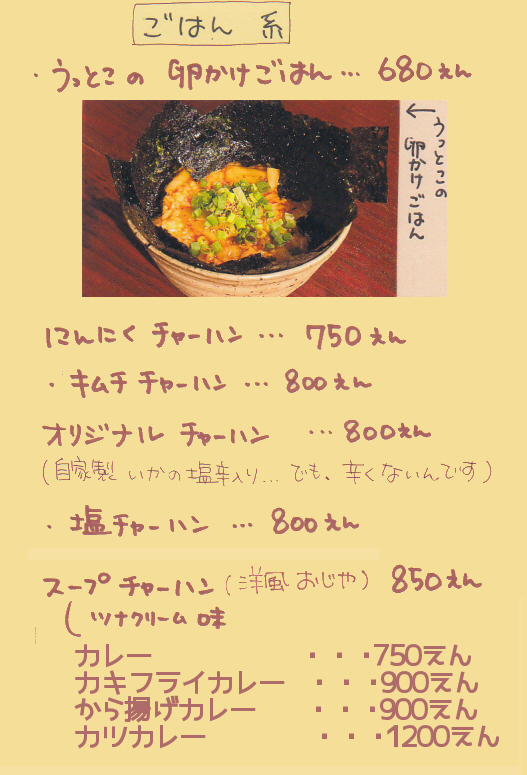 ごはん 系
・うっとこの 卵かけごはん… 680えん
← うっとこの
卵かけごはん
にんにく チャーハン … 750えん
・キムチ チャーハン … 800えん
オリジナル チャーハン … 800えん
(自家製 いかの塩辛入り… でも、辛くないんです)
・塩チャーハン … 800えん
スープ チャーハン (洋風 おじや) 850えん
ツナクリーム 味
カレー ・・・750えん
カキフライカレー ・・・900えん
から揚げカレー ・・・900えん
カツカレー ・・・1200えん